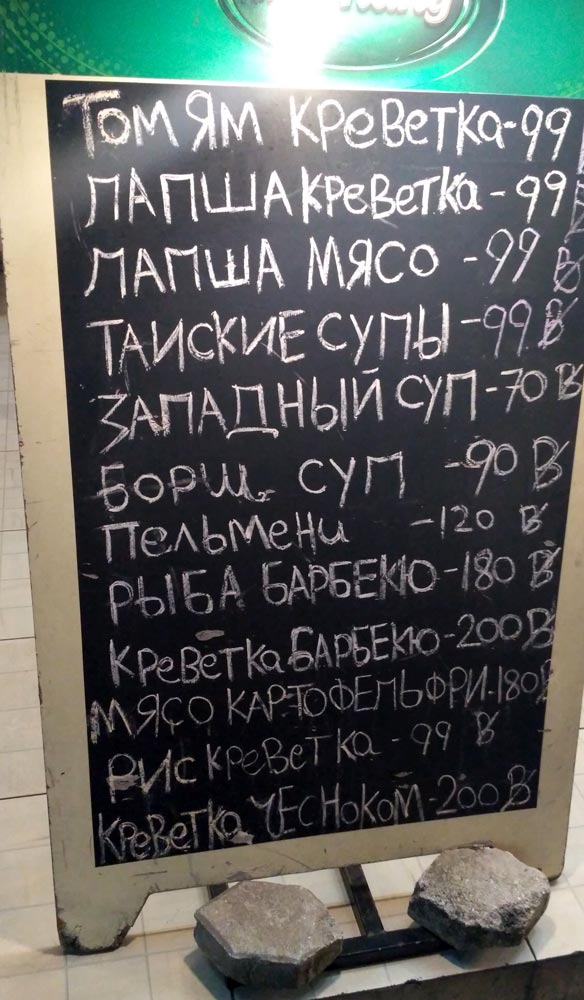 Том Ям Креветка-99
ЛАПША Креветка-99 ฿
ЛАПША МЯСО -99 ฿
ТАИСКИЕ СУПЫ-99 ฿
ЗАПАДНЫЙ СУП-70 ฿
БОРЩ СУП -90 ฿
Пельмени -120 ฿
РЫБА БАРБЕКЮ-180 ฿
Креветка БАРБЕКЮ-200 ฿
МЯСО КАРТОФЕЛЬ ФРИ-180 ฿
РИС Креветка -99 ฿
Креветка ЧЕСНОКОМ-200 ฿